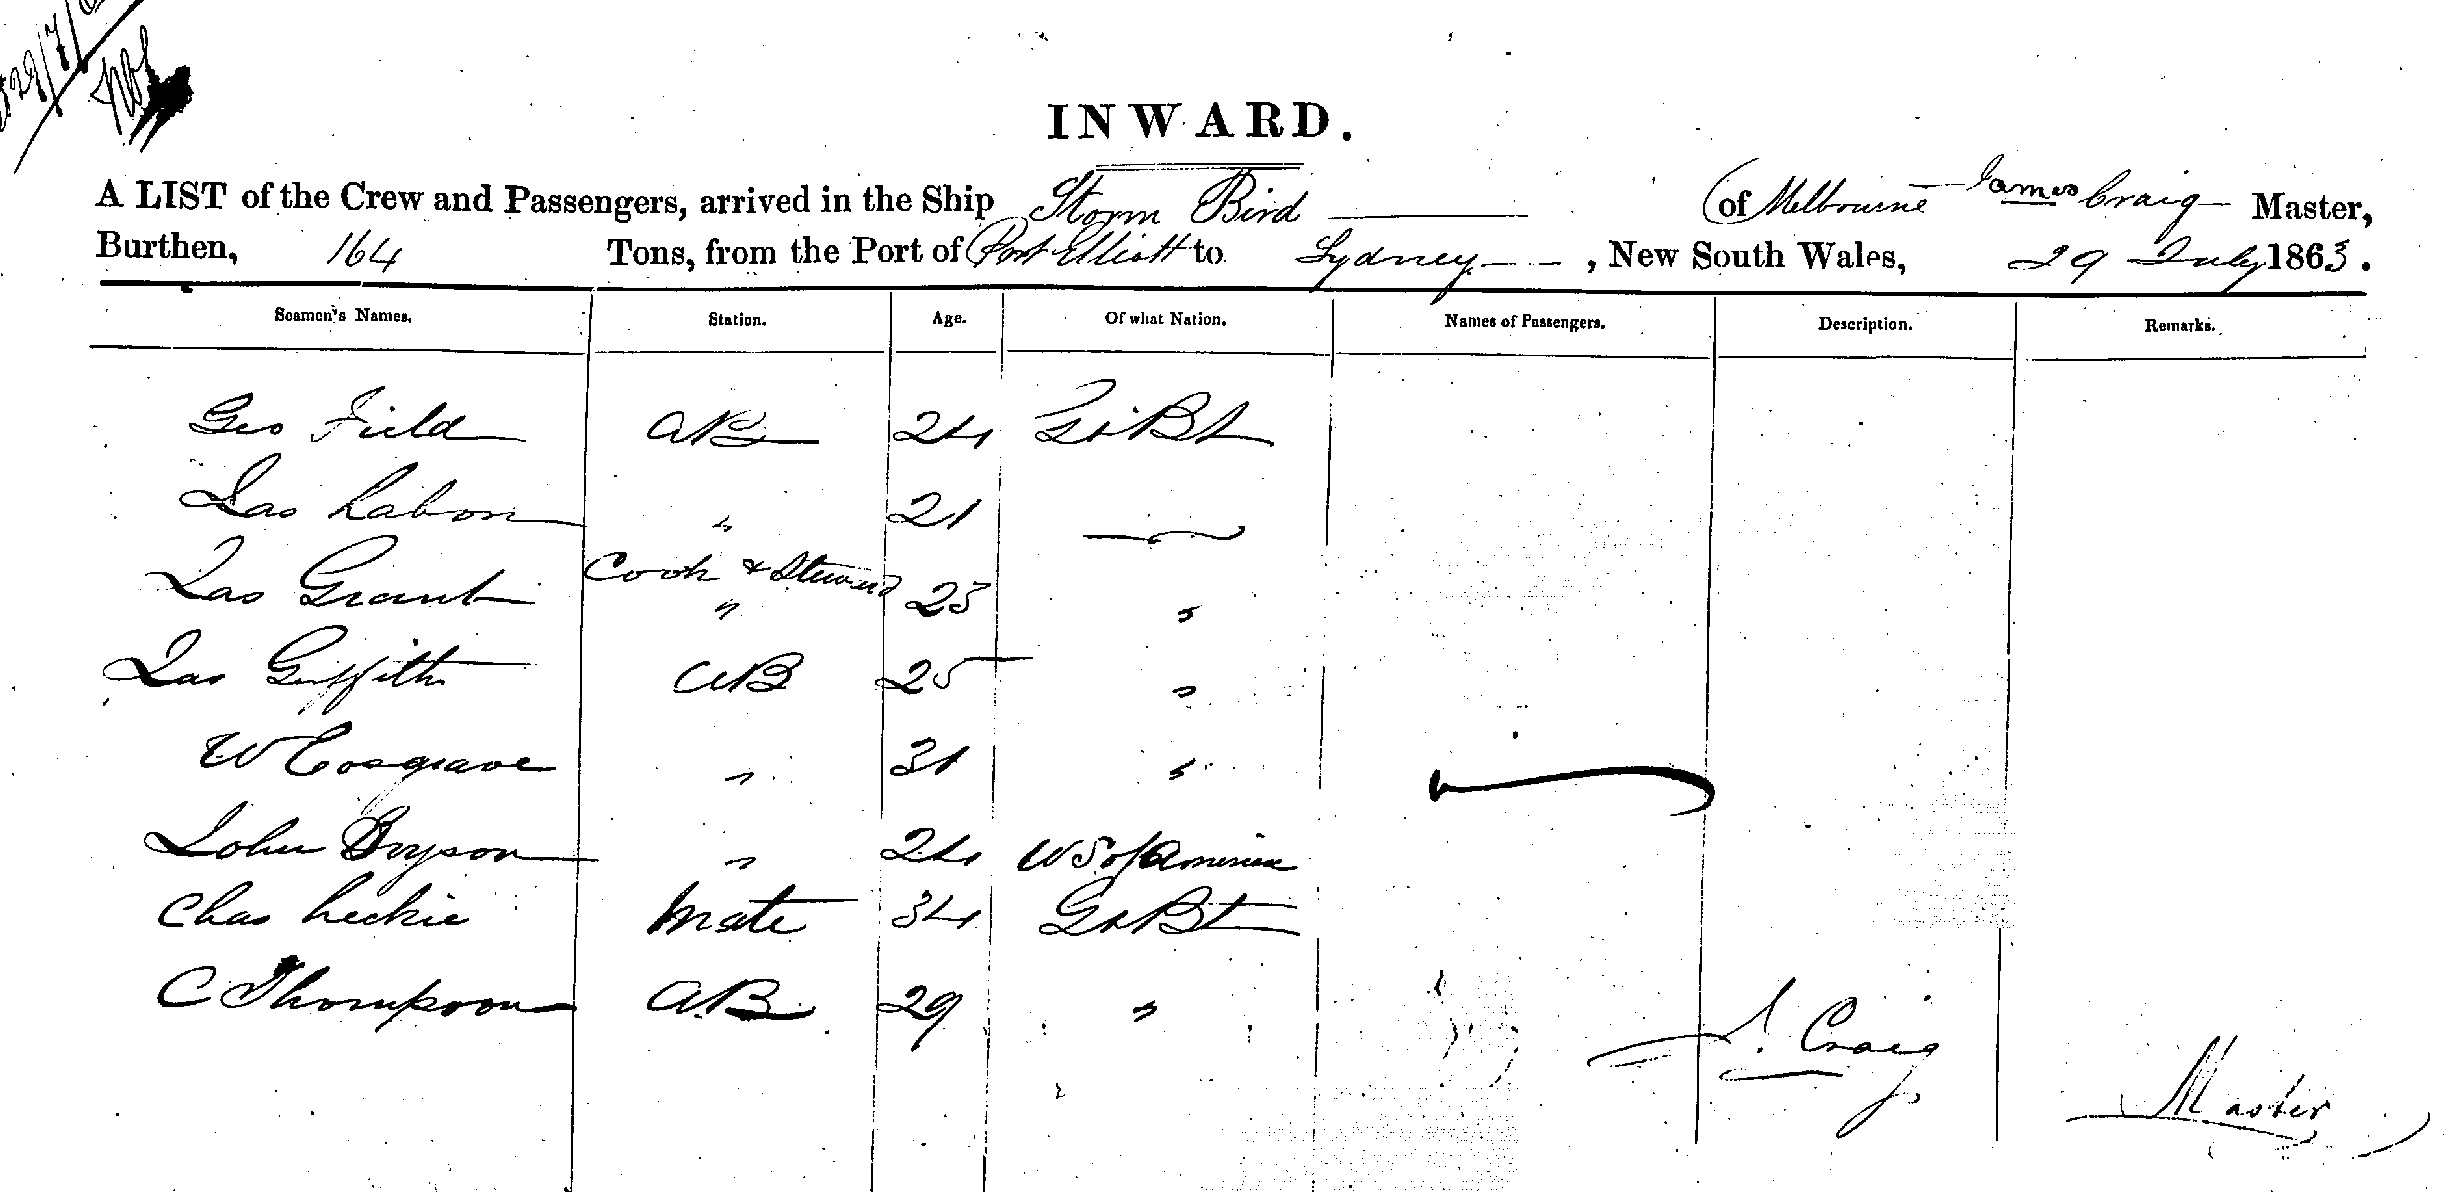 29/7/
INWARD.
A LIST of the Crew and Passengers, arrived in the Ship Storm Bird (of Melbourne James Craig Master,
Burthen, 164 Tons, from the Port of Port Elliott to Sydney, New South Wales, 29 July 1863.
Seamen's Names. Station. Age. Of what Nation. Names of Passengers. Description. Remarks.
Geo Field AB 24 Gt Bt
Jas Labon " 21
Jas Grant Cook & Steward " 23 "
Jas Griffith AB 25 "
W Cosgrave " 31 "
John " 24 US of America
Chas Leckie Mate 34 Gt Bt
C Thompson AB 29 "
J. Craig
Master